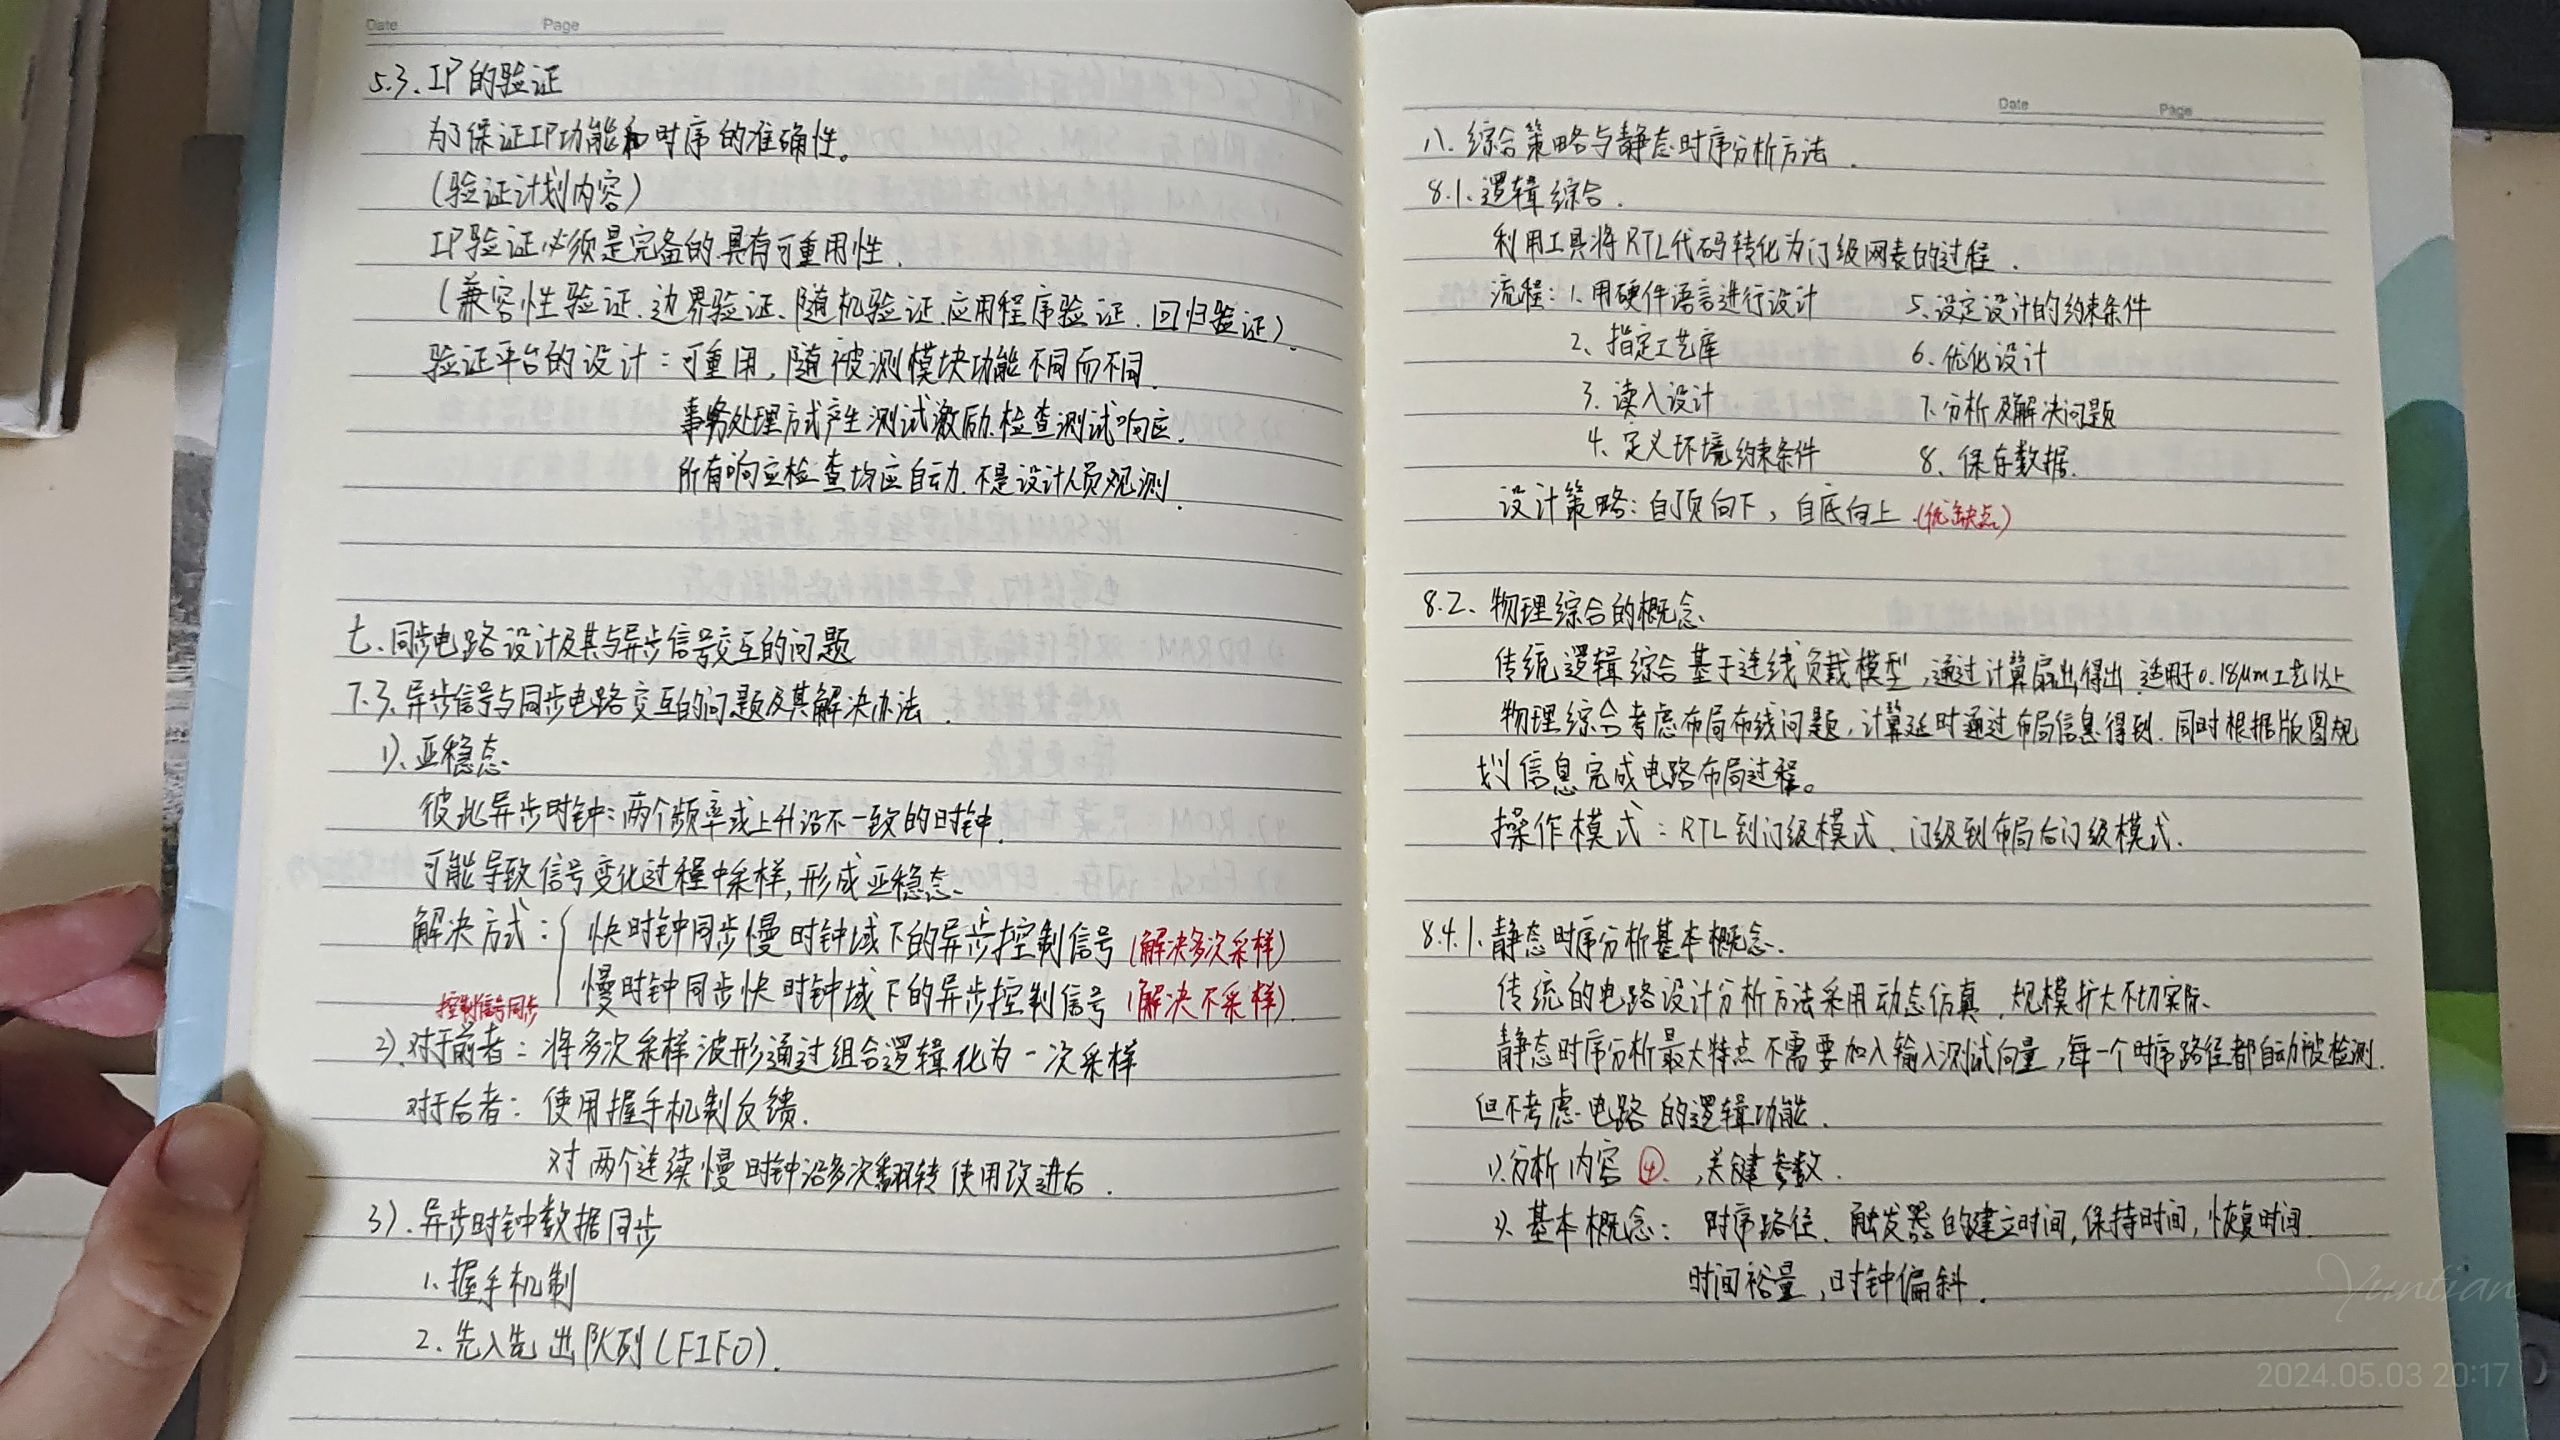 Date Page
5.3、IP的验证
为了保证IP功能和时序的准确性。
(验证计划内容)
IP验证必须是完备的.具有可重用性.
(兼容性验证、边界验证、随机验证、应用程序验证、回归验证).
验证平台的设计:可重用,随被测模块功能不同而不同.
事务处理方式产生测试激励.检查测试响应.
所有响应检查均应自动.不是设计人员观测.
七、同步电路设计及其与异步信号交互的问题
7.3、异步信号与同步电路交互的问题及其解决办法.
1)、亚稳态
彼此异步时钟:两个频率或上升沿不一致的时钟.
可能导致信号变化过程中采样,形成亚稳态.
解决方式:{ 快时钟同步慢时钟域下的异步控制信号(解决多次采样)
慢时钟同步快时钟域下的异步控制信号(解决不采样).
控制信号同步
2).对于前者:将多次采样波形通过组合逻辑化为一次采样
对于后者:使用握手机制反馈.
对两个连续慢时钟沿多次翻转使用改进后.
3).异步时钟数据同步
1、握手机制
2.先入先出队列(FIFO).
Date Page
八、综合策略与静态时序分析方法.
8.1、逻辑综合.
利用工具将RTL代码转化为门级网表的过程.
流程:1.用硬件语言进行设计 5、设定设计的约束条件
2、指定工艺库 6.优化设计
3.读入设计 7.分析及解决问题
4、定义环境约束条件 8、保存数据.
设计策略:自顶向下,自底向上.(优缺点)
8.2、物理综合的概念
传统逻辑综合基于连线负载模型,通过计算扇出得出.适用于0.18μm工艺以上
物理综合考虑布局布线问题,计算延时通过布局信息得到.同时根据版图规
划信息完成电路布局过程。
操作模式:RTL到门级模式、门级到布局后门级模式.
8.4.1、静态时序分析基本概念.
传统的电路设计分析方法采用动态仿真,规模扩大不切实际.
静态时序分析最大特点不需要加入输入测试向量,每一个时序路径都自动被检测.
但不考虑电路的逻辑功能.
1).分析内容④.,关键参数.
2)、基本概念:时序路径、触发器的建立时间,保持时间,恢复时间.
时间裕量,时钟偏斜.
Yuntian
2024.05.03 20:17